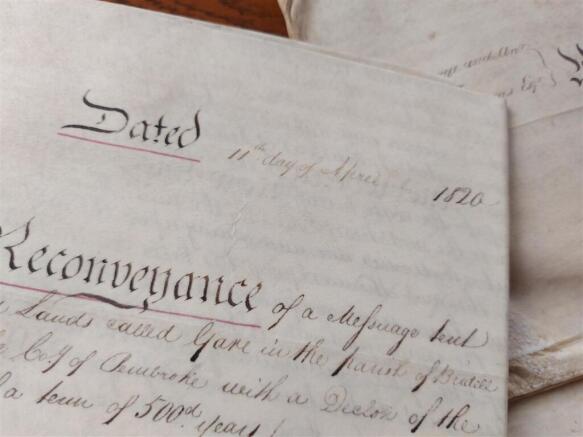 Dated
11th day of April 1820
Reconveyance of a Messuage tent
Lands called Gare in the parish of
Co.y of Pembroke with a Declon of the
a term of 500d years
Esqr